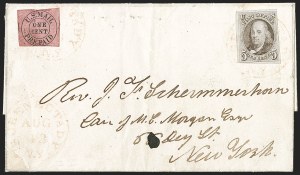 U.S. MAIL
ONE
CENT
PREPAID
5
Rev. J. F. Schermmerhorn
Care of M. C. Morgan Esqr
Dey St.
New York.